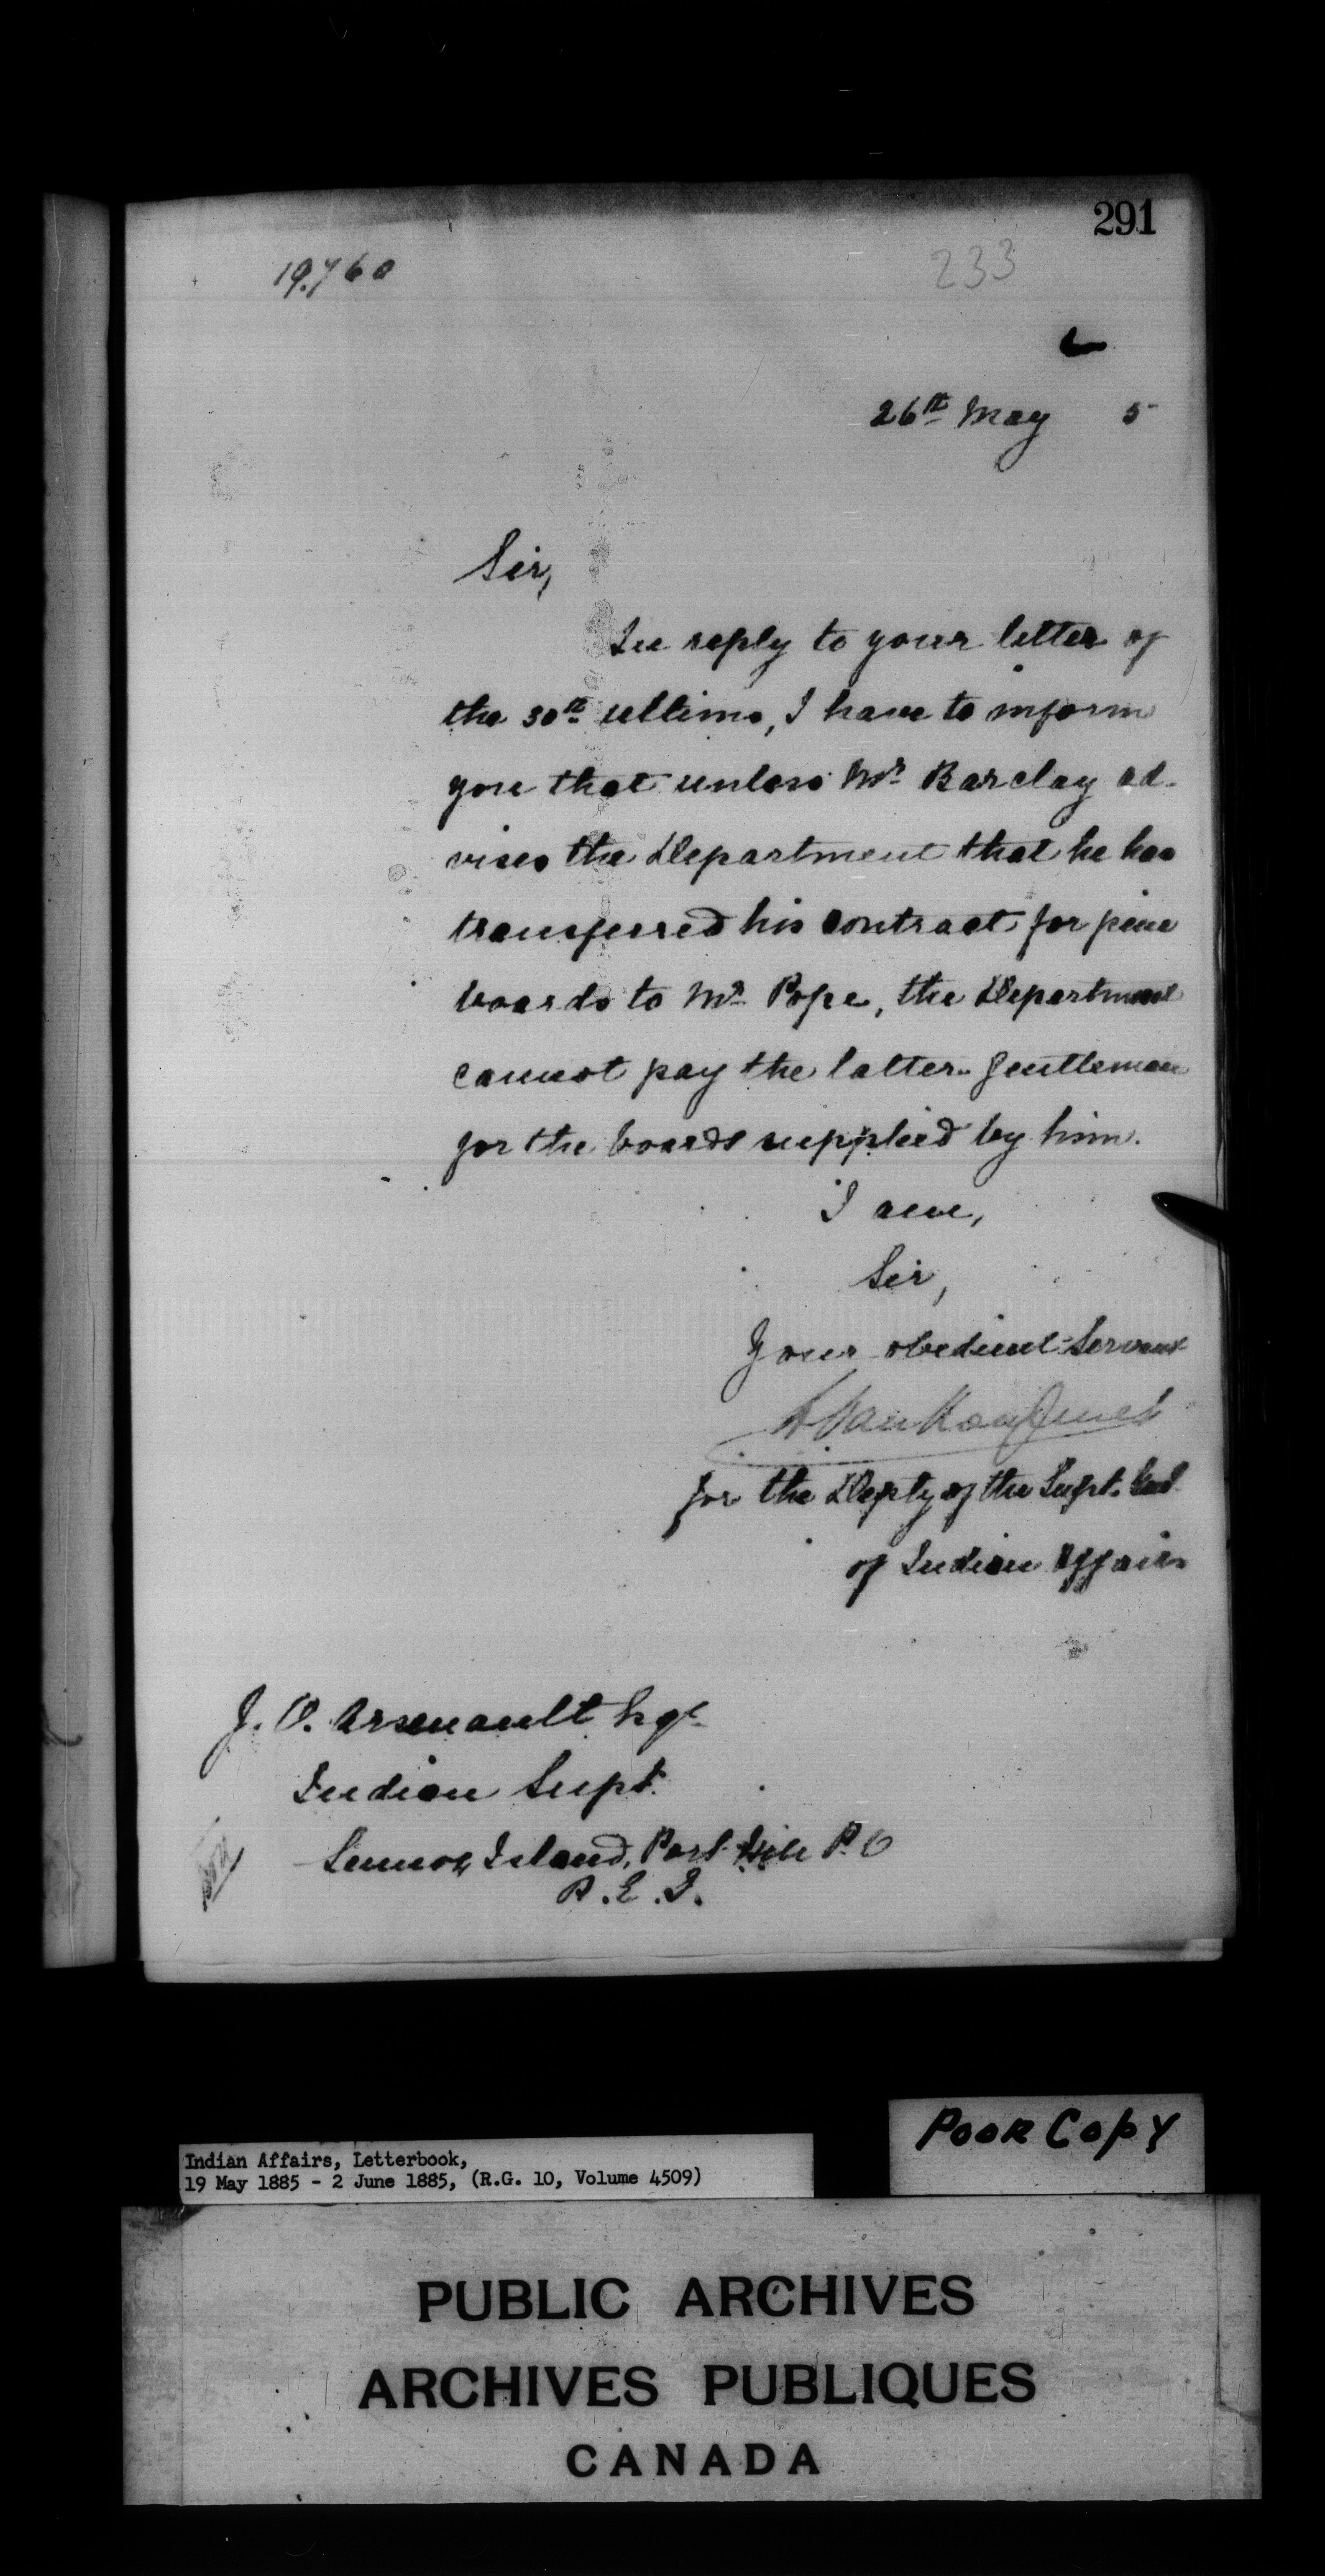 291
19.760
233
26th May 5
Sir,
In reply to your letter of
the 30th ultimo, I have to inform
you that unless Mr Barclay ad-
vises the Department that he has
transferred his contract for pine
boards to Mr Pope, the Department
cannot pay the latter gentleman
for the boards supplied by him.
I am,
Sir,
Your obedient Servant
L VanKoughnet
for the Depty of the Supt. Genl
of Indian Affairs
J. O. Arsenault Esqr
Indian Supt.
Lennox Island, Port Hill P.O
P.E.I.
POOR COPY
Indian Affairs, Letterbook,
19 May 1885 - 2 June 1885, (R.G. 10, Volume 4509)
PUBLIC ARCHIVES
ARCHIVES PUBLIQUES
CANADA